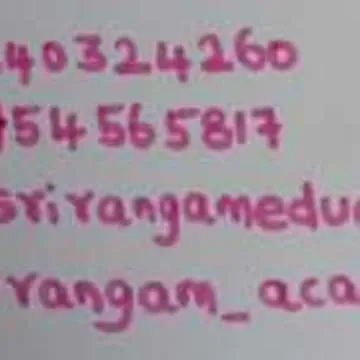 40324260
754565817
srirangamedu
rangam_aca